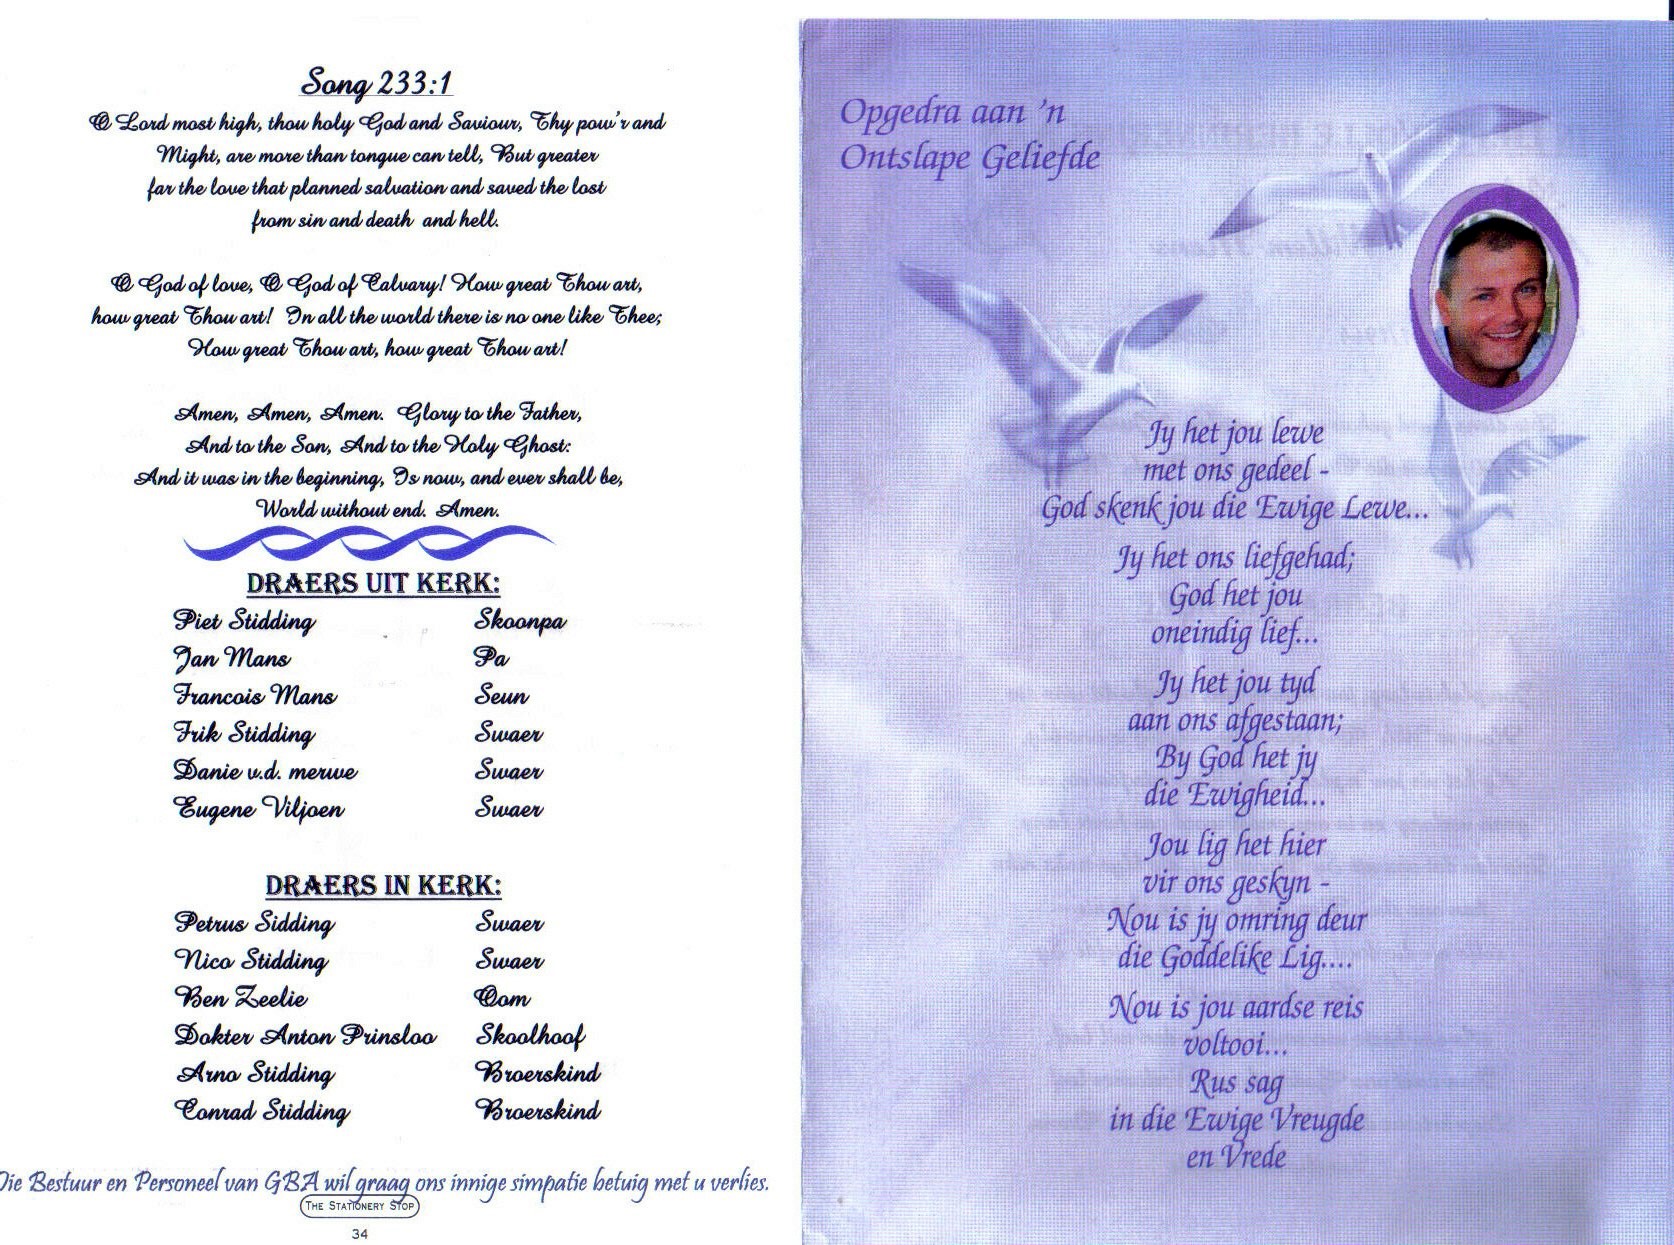 Song 233:1
O Lord most high, thou holy God and Saviour, Thy pow'r and
Might, are more than tongue can tell, But greater
far the love that planned salvation and saved the lost
from sin and death and hell.
O God of love, O God of Calvary! How great Thou art,
how great Thou art! In all the world there is no one like Thee;
How great Thou art, how great Thou art!
Amen, Amen, Amen. Glory to the Father,
And to the Son, And to the Holy Ghost:
And it was in the beginning, Is now, and ever shall be,
World without end. Amen.
DRAERS UIT KERK:
Piet Stidding Skoonpa
Jan Mans Pa
Francois Mans Seun
Frik Stidding Swaer
Danie v.d. merwe Swaer
Eugene Viljoen Swaer
DRAERS IN KERK:
Petrus Sidding Swaer
Nico Stidding Swaer
Ben Zeelie Oom
Dokter Anton Prinsloo Skoolhoof
Arno Stidding Broerskind
Conrad Stidding Broerskind
Die Bestuur en Personeel van GBA wil graag ons innige simpatie betuig met u verlies.
THE STATIONERY STOP
34
Opgedra aan 'n
Ontslape Geliefde
Jy het jou lewe
met ons gedeel -
God skenk jou die Ewige Lewe...
Jy het ons liefgehad;
God het jou
oneindig lief...
Jy het jou tyd
aan ons afgestaan;
By God het jy
die Ewigheid...
Jou lig het hier
vir ons geskyn -
Nou is jy omring deur
die Goddelike Lig....
Nou is jou aardse reis
voltooi...
Rus sag
in die Ewige Vreugde
en Vrede